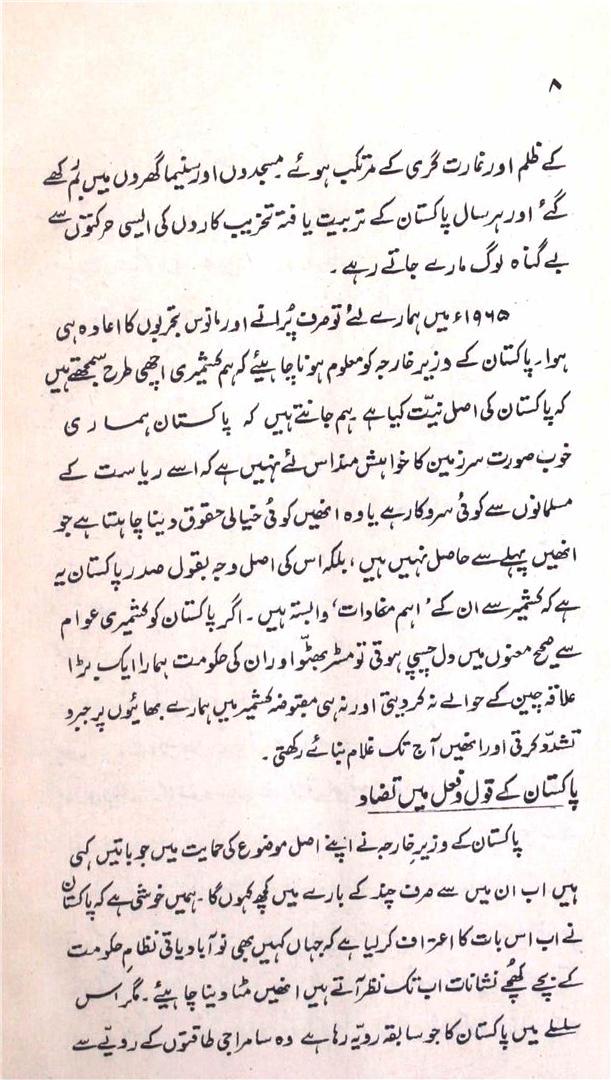 ۸
کے ظلم اور غارت گری کے مرتکب ہوئے مسجدوں اور سنیما گھروں میں بم رکھے
گئے اور ہر سال پاکستان کے تربیت یافتہ تخریب کاروں کی ایسی حرکتوں سے
بے گناہ لوگ مارے جاتے رہے۔
۱۹۶۵ء میں ہمارے لئے تو صرف پُرانے اور مانوس تجربوں کا اعادہ ہی
ہوا۔ پاکستان کے وزیر خارجہ کو معلوم ہونا چاہیئے کہ ہم کشمیری اچھی طرح سمجھتے ہیں
کہ پاکستان کی اصل نیّت کیا ہے ہم جانتے ہیں کہ پاکستان ہماری
خوب صورت سرزمین کا خواہش منداس لئے نہیں ہے کہ اسے ریاست کے
مسلمانوں سے کوئی سروکار ہے یا وہ انھیں کوئی خیالی حقوق دینا چاہتا ہے جو
انھیں پہلے سے حاصل نہیں ہیں، بلکہ اس کی اصل وجہ بقول صدر پاکستان یہ
ہے کہ کشمیر سے ان کے ’اہم مفادات‘ وابستہ ہیں۔ اگر پاکستان کو کشمیری عوام
سے صحیح معنوں میں دل چسپی ہوتی تو مسٹر بھٹّو اور ان کی حکومت ہمارا ایک بڑا
علاقہ چین کے حوالے نہ کر دیتی اور نہ ہی مقبوضہ کشمیر میں ہمارے بھائیوں پر جبر و
تشدّد کرتی اور انھیں آج تک غلام بنائے رکھتی۔
پاکستان کے قول و فعل میں تضاد
پاکستان کے وزیر خارجہ نے اپنے اصل موضوع کی حمایت میں جو باتیں کہی
ہیں اب ان میں سے صرف چند کے بارے میں کچھ کہوں گا۔ ہمیں خوشی ہے کہ پاکستان
نے اب اس بات کا اعتراف کر لیا ہے کہ جہاں کہیں بھی نو آبادیاتی نظامِ حکومت
کے بچے کھچے نشانات اب تک نظر آتے ہیں انھیں مٹا دینا چاہیئے۔ مگر اس
سلسلے میں پاکستان کا جو سابقہ رویّہ رہا ہے وہ سامراجی طاقتوں کے رویّے سے